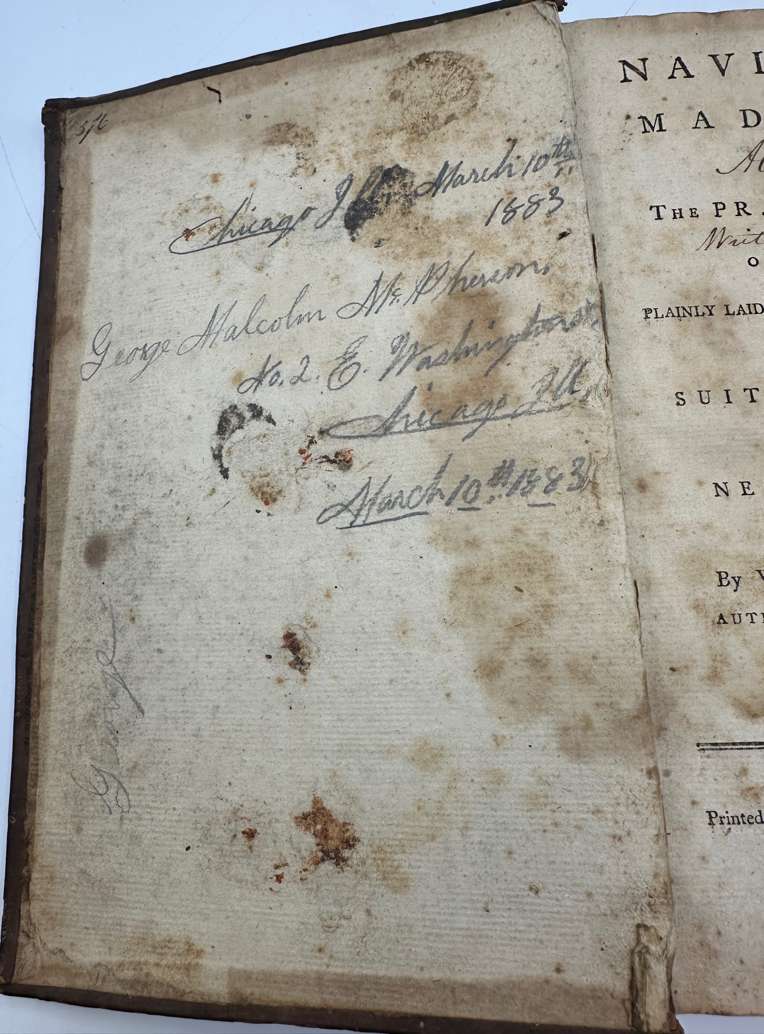 Chicago Ill. March 10th
1883
George Malcolm McPherson,
No. 2. E. Washington st.
Chicago Ill,
March 10th 1883
George
NAVI
MAD
THE PR
Writ
O
PLAINLY LAID
SUIT
NE
By
AUTH
Printed